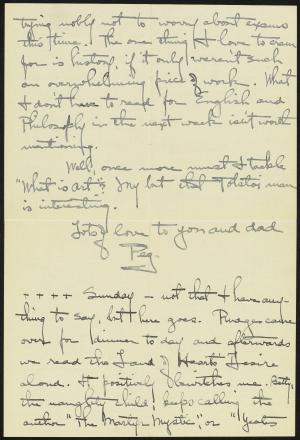 trying nobly not to worry about exams
this time. The one thing I love to cram
for is history, if it only weren't such
an overwhelming piece of work. What
I don't have to read for English and
Philosophy in the next week isn't worth
mentioning.
Well, once more must I tackle
"What is art". My but that Tolstoi man
is interesting.
Lots of love to you and dad
Peg.
++++ Sunday - not that I have any-
thing to say, but here goes. came
over for dinner to day and afterwards
we read the Land of Heart's Desire
aloud. It positively bewitches me. Betty,
the naughty child, keeps calling the
author "The Martyr Mystic", or "Yeats